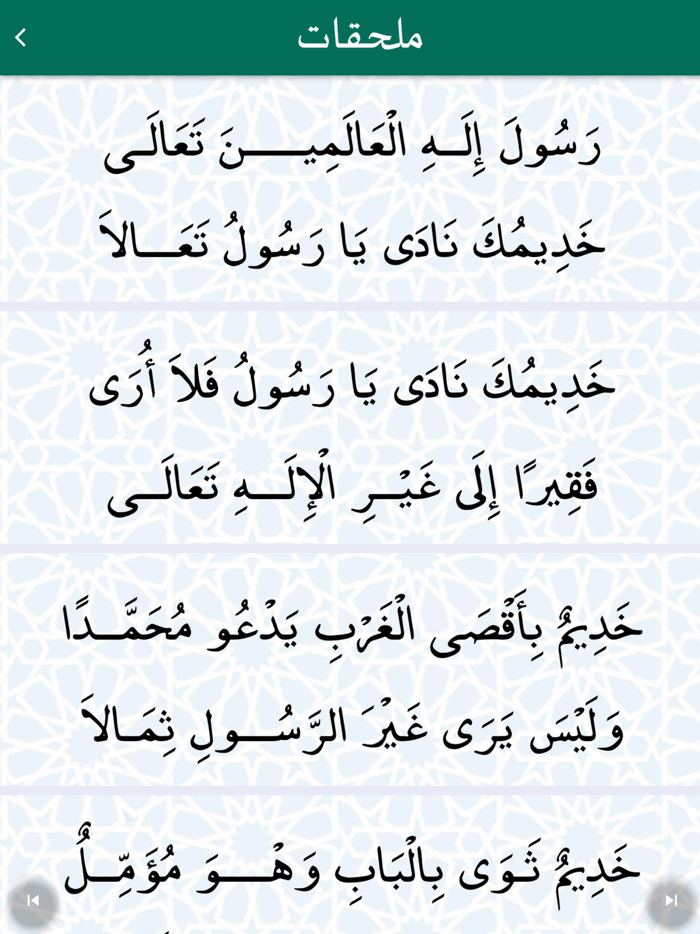 ملحقات
رَسُولَ إِلَـهِ الْعَالَمِيـــــنَ تَعَالَـى
خَدِيمُكَ نَادَى يَا رَسُولُ تَعَـــالاَ
خَدِيمُكَ نَادَى يَا رَسُولُ فَلاَ أُرَى
فَقِيرًا إِلَى غَيْـــرِ الْإِلَـــهِ تَعَالَــى
خَدِيمٌ بِأَقْصَى الْغَرْبِ يَدْعُو مُحَمَّــدًا
وَلَيْسَ يَرَى غَيْرَ الرَّسُـــولِ ثِمَـالاَ
خَدِيمٌ ثَـوَى بِالْبَابِ وَهْـــوَ مُؤَمِّــلٌ